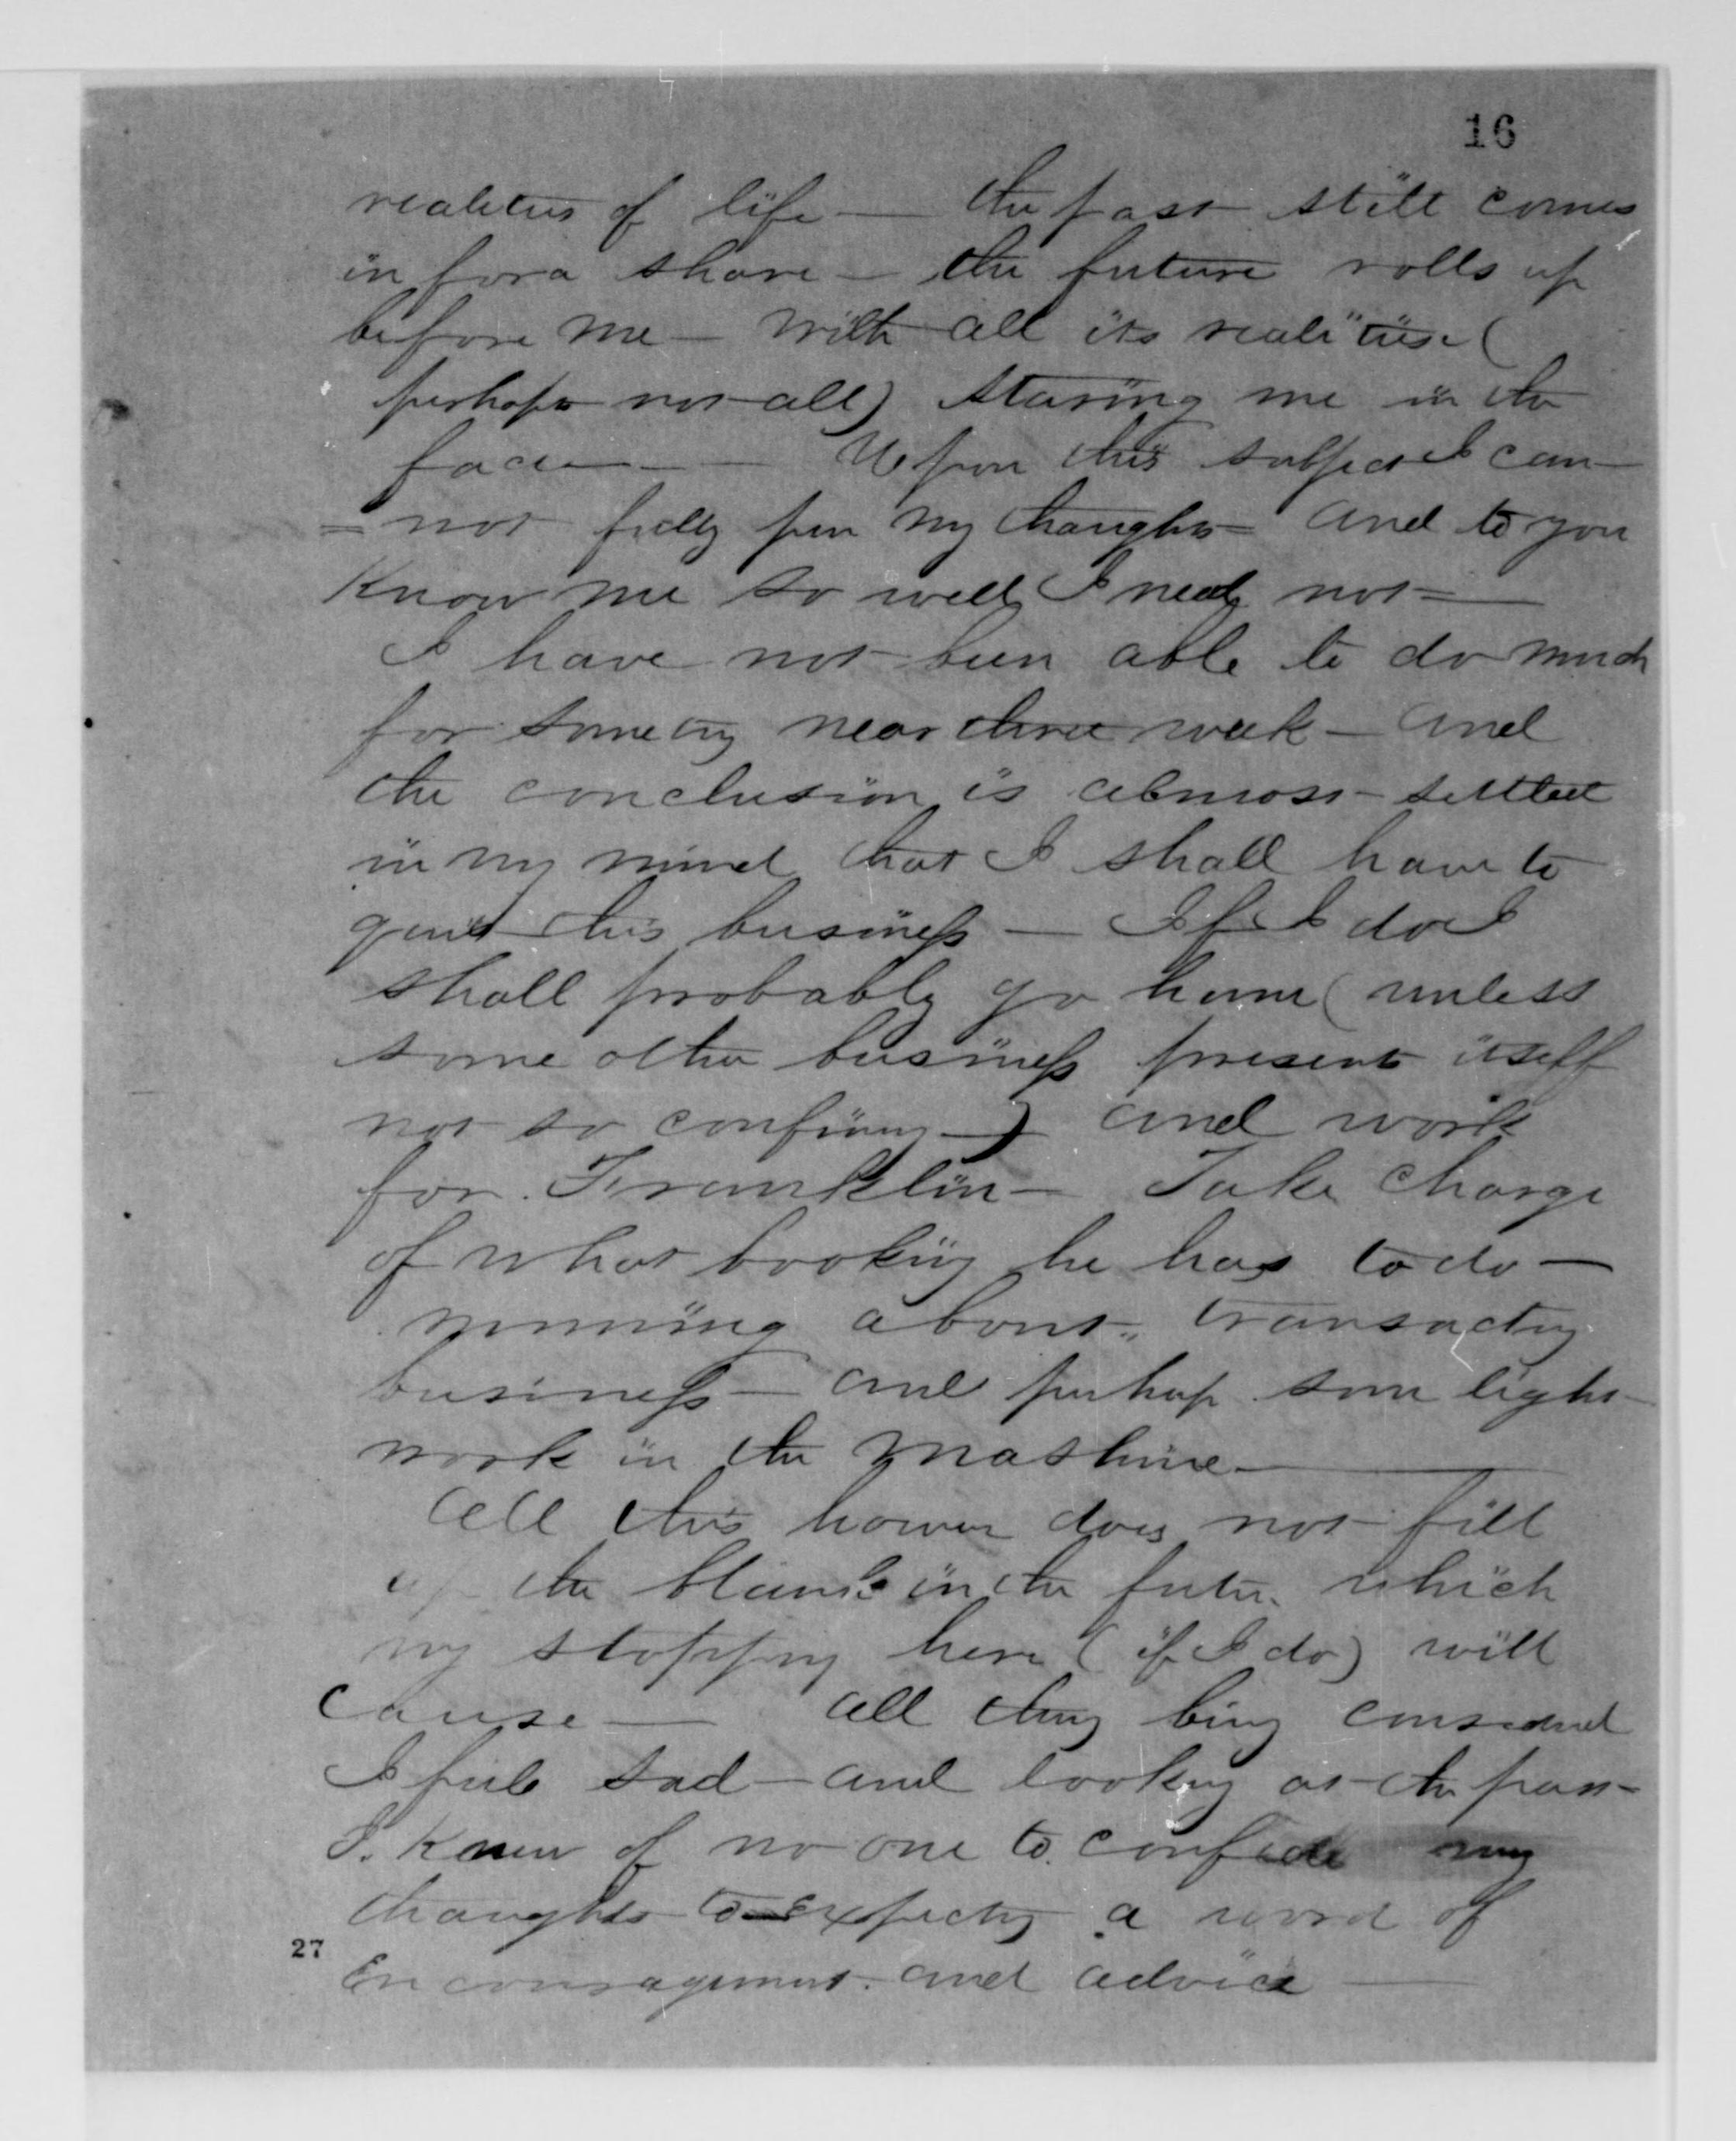 16
realities of life — the past still comes
in for a share — the future rolls up
before me — with all its realities (
perhaps not all) staring me in the
face — — Upon this subject I can-
= not fully pen my thoughts = and to you
know me so well I need not =
I have not been able to do much
for some tg near three week — and
the conclusion is almost settled
in my mind that I shall have to
quit this business — If I do I
shall probably go home ( unless
some other business presents itself
not so confining —) and work
for Franklin — Take charge
of what booking he has to do —
running about, transacting
business — and perhap some light
work in the mashine —
All this however does not fill
up the blank in the futu. which
my stopping here ( if I do) will
cause — all thing being considered
I feel sad — and looking at the past
I. know of no one to confide my
thoughts to expecting a word of
27
Encouragement. and advice —